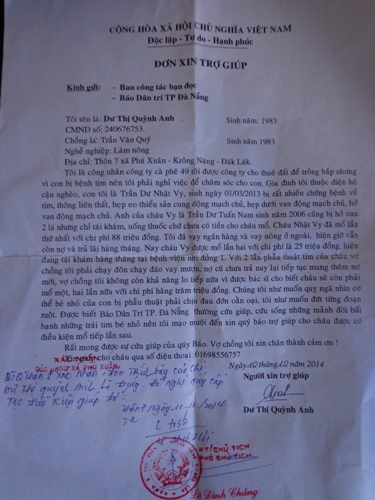 CỘNG HÒA XÃ HỘI CHỦ NGHĨA VIỆT NAM
Độc lập - Tự do - Hạnh phúc
ĐƠN XIN TRỢ GIÚP
Kính gửi: - Ban công tác bạn đọc
- Báo Dân trí TP Đà Nẵng
Tôi tên là: Dư Thị Quỳnh Anh Sinh năm: 1983
CMND số: 240676753.
Chồng là: Trần Văn Quý Sinh năm 1983
Nghề nghiệp: Làm nông
Địa chỉ: Thôn 7 xã Phú Xuân - Krông Năng - Đăk Lăk.
Tôi là công nhân công ty cà phê 49 tôi được công ty cho thuê đất để trồng bắp nhưng
vì con bị bệnh tim nên tôi phải nghỉ việc để chăm sóc cho con. Gia đình tôi thuộc diện hộ
cận nghèo, con tôi là Trần Dư Nhật Vy, sinh ngày 01/03/2013 bị rất nhiều chứng bệnh về
tim, thông liên thất, hẹp eo thiểu sản cung động mạch chủ, hẹp dưới van động mạch chủ, hở
van động mạch chủ. Anh của cháu Vy là Trần Dư Tuấn Nam sinh năm 2006 cũng bị hở van
2 lá nhưng chỉ tái khám, uống thuốc chứ chưa có tiền cho cháu mổ. Cháu Nhật Vy đã mổ lần
thứ nhất với chi phí 88 triệu đồng. Tôi đã vay ngân hàng và vay nóng ở ngoài, hiện giờ vẫn
còn nợ và trả lãi hàng tháng. Nay cháu Vy được mổ lần hai với chi phí là 25 triệu đồng, hiện
đang tái khám hàng tháng tại bệnh viện nhi đồng 1. Với 2 lần phẫu thuật tim của cháu vợ
chồng tôi phải chạy đôn chạy đáo vay mượn, nợ cũ chưa trả nay lại tiếp tục mang thêm nợ
mới, vợ chồng tôi không còn khả năng lo tiếp nữa vì được bác sĩ cho biết cháu sẽ còn phải
mổ một, hai lần nữa với chi phí hàng trăm triệu đồng. Chúng tôi như muốn quỵ ngã khi nhìn cơ
thể bé nhỏ của con bị phẫu thuật phải chịu đau đớn oằn oại, tôi như muốn đứt từng đoạn
ruột. Được biết Báo Dân Trí TP. Đà Nẵng thường cứu giúp, cứu sống những mảnh đời bất
hạnh những trái tim bé nhỏ nên tôi mạo muội đến xin quý báo trợ giúp cho cháu được có
điều kiện mổ tiếp lần sau.
Rất mong được sự cứu giúp của qúy Báo. Vợ chồng tôi xin chân thành cảm ơn !
cho cháu qua số điện thoại: 01698556757
XÁC NHẬN
CỦA UBND XÃ PHÚ XUÂN
Ngày 10 tháng 10 năm 2014
Người xin trợ giúp
Dư Thị Quỳnh Anh
KT/CHỦ TỊCH
PHÓ CHỦ TỊCH
Đình Chúng